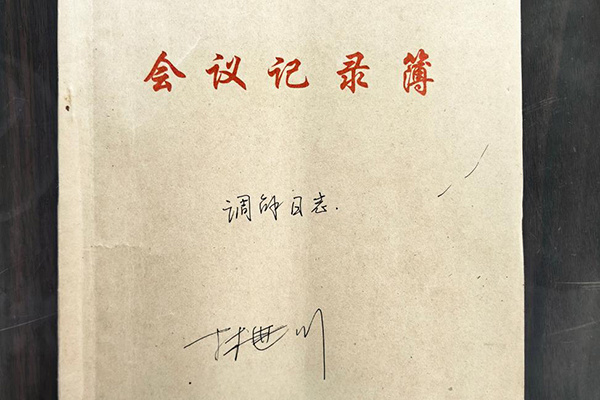 会议记录簿
调解日志.
林世川